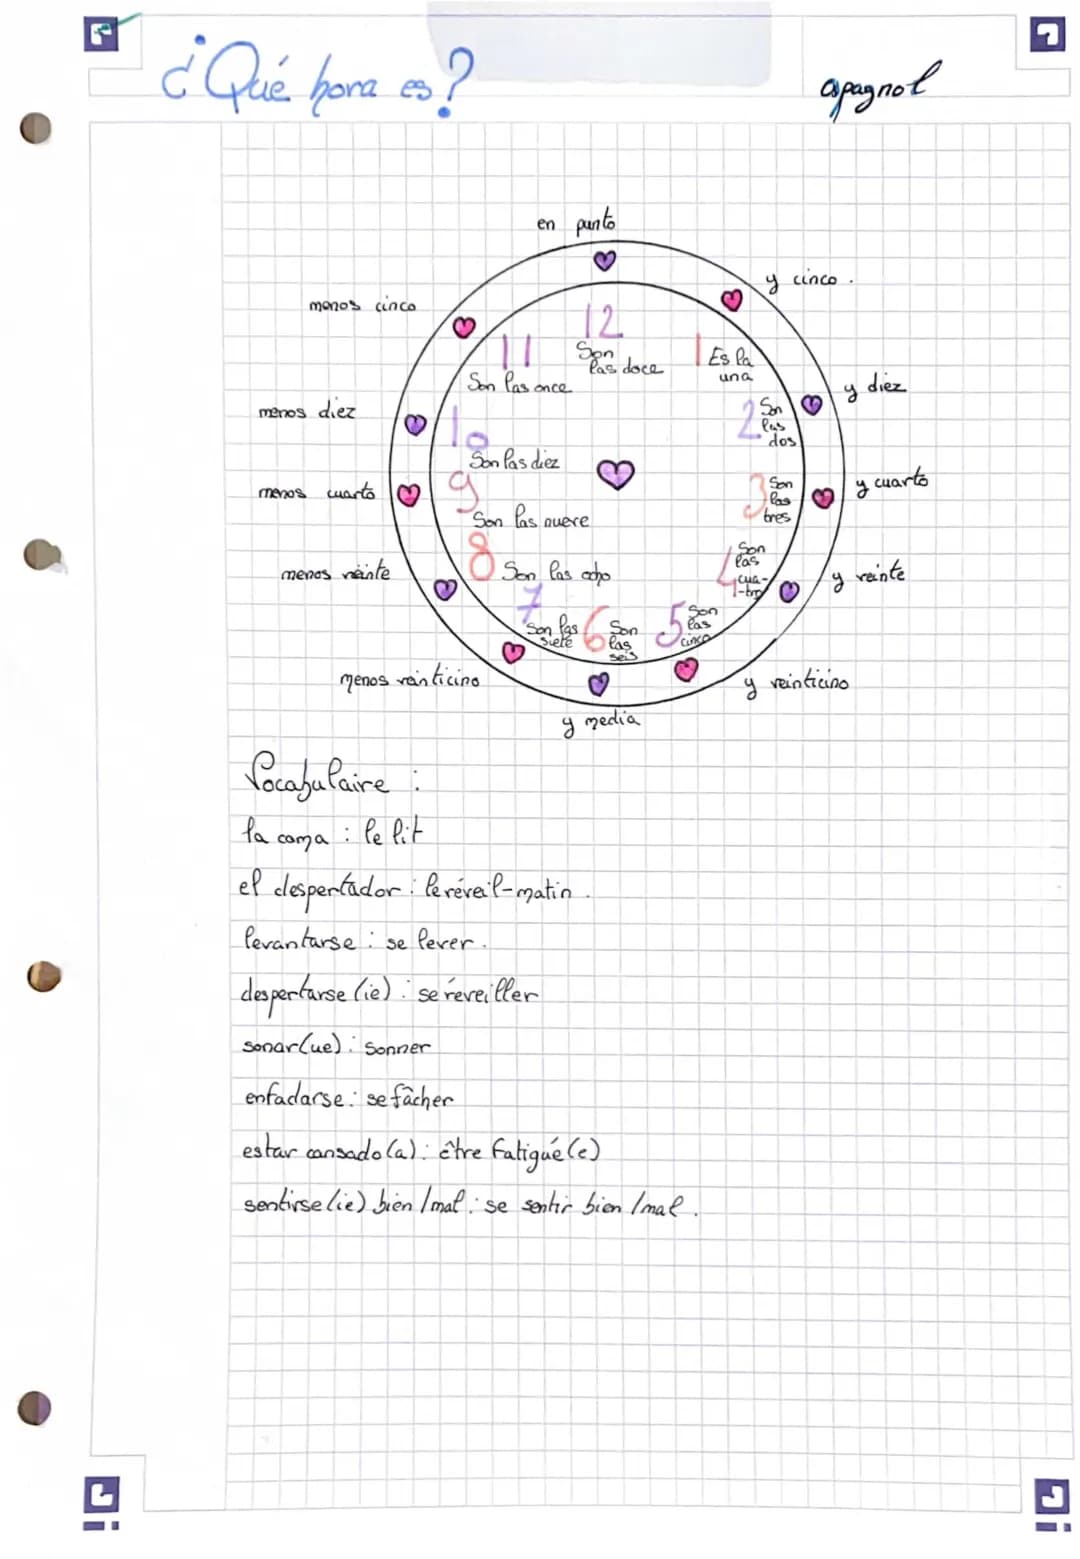 ¿Qué hora es?
espagnol
en punto
y cinco.
menos cinco
12
Son
las doce
11
Son las once
1 Es la
una
y diez
menos diez
2 Son
las
dos
10
Son las diez
y cuarto
menos cuarto
9
Son las nueve
3 Son
las
tres
8 Son las ocho
4 Son
las
cua-
-tro
y veinte
menos veinte
7
Son las
siete
6 Son
las
seis
5 Son
las
cinco
menos veinticino
y veinticino
y media
Vocabulaire :
la cama : le lit
el despertador : le réveil-matin.
levantarse : se lever.
despertarse (ie) : se réveiller
sonar (ue) : sonner
enfadarse : se fâcher
estar cansado (a) : être fatigué (e)
sentirse (ie) bien / mal : se sentir bien / mal.